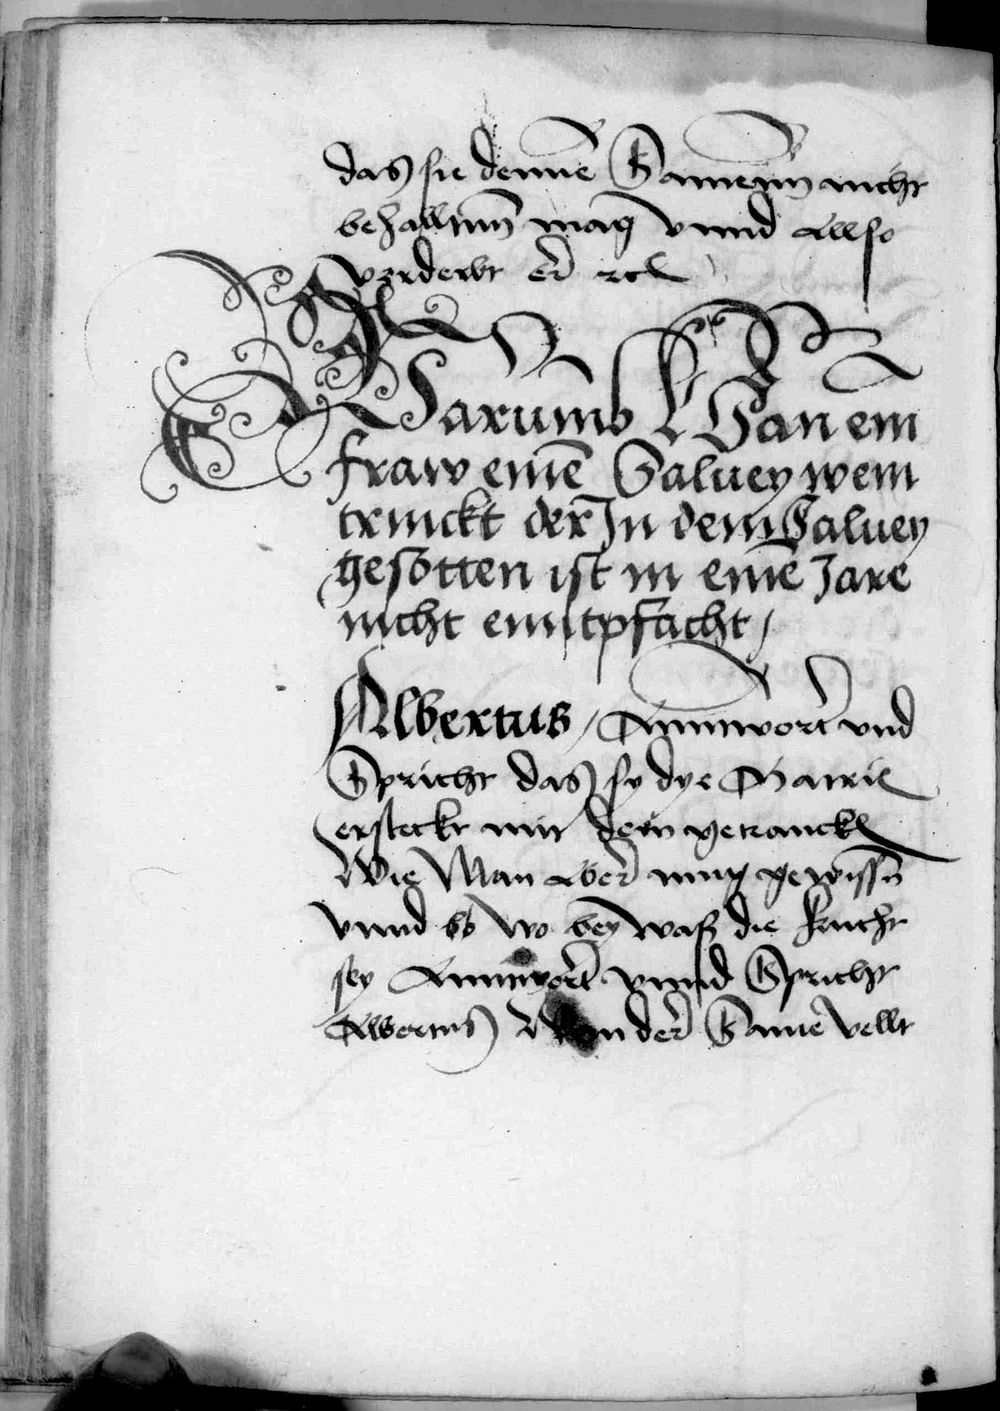 das sie dennē Samenn nicht
behalltnn mag vnnd Allso
verderbt er̄ etc
Warumb Wan ein
fraw einē Saluey wein
trinckt der Jn dem Saluey
gesotten ist in einē Jare
nicht enntpfacht /
Albertus / Anntwort vnd
Spricht das sy dye Matrix
ersteckt mit dem getranck
Wie Man Aber mug gewissn̄
vnnd bÿ wo bey waß die frucht
sey Anntwort vnnd Spricht
Albertus Wan der Same vellt